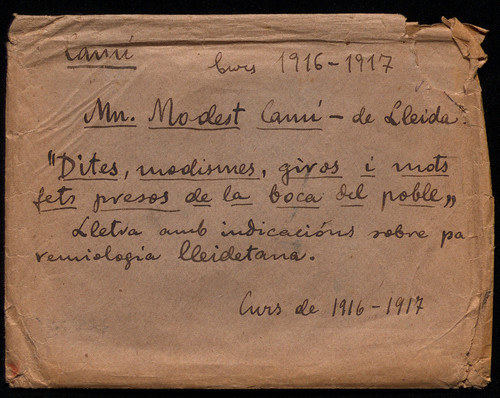 Camí
Curs 1916-1917
Mn. Modest Camí - de Lleida.
"Dites, modismes, giros i mots
fets presos de la boca del poble„
Lletra amb indicacións sobre pa-
remiología lleidetana.
Curs de 1916-1917